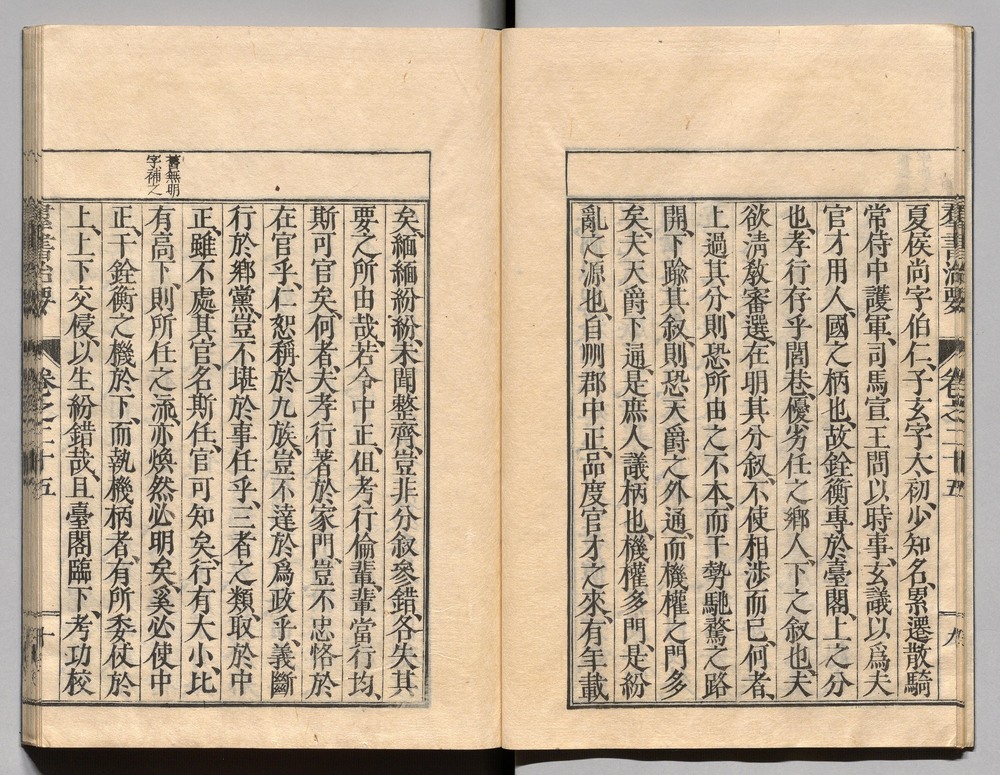 群書治要 卷之二十五 九
夏侯尚字伯仁、子玄字太初、少知名、累遷散騎
常侍中護軍、司馬宣王問以時事、玄議以爲夫
官才用人、國之柄也、故銓衡專於臺閣、上之分
也、孝行存乎閭巷、優劣任之鄉人、下之叙也、夫
欲淸敎審選、在明其分叙、不使相涉而已、何者、
上過其分、則恐所由之不本、而干勢馳騖之路
開、下踰其叙、則恐天爵之外通、而機權之門多
矣、夫天爵下通、是庶人議柄也、機權多門、是紛
亂之源也、自州郡中正、品度官才之來、有年載
矣、緬緬紛紛、未聞整齊、豈非分叙參錯、各失其
要之所由哉、若令中正、但考行倫輩、輩當行均、
斯可官矣、何者、夫孝行著於家門、豈不忠恪於
在官乎、仁恕稱於九族、豈不達於爲政乎、義斷
行於鄉黨、豈不堪於事任乎、三者之類、取於中
正、雖不處其官名、斯任官可知矣、行有大小、比
有高下、則所任之流、亦煥然必明矣、奚必使中
正、干銓衡之機於下、而執機柄者、有所委仗於
上、上下交侵、以生紛錯哉、且臺閣臨下、考功校
舊無明
字補之
群書治要 卷之二十五 十